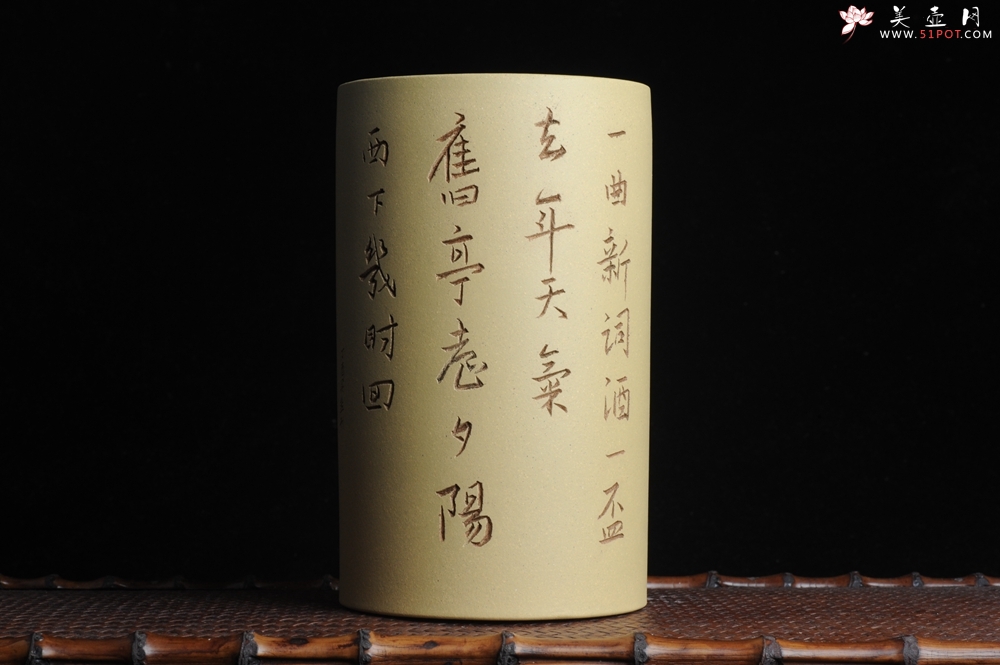 美壶网
WWW.51POT.COM
一曲新詞酒一盃
去年天氣
舊亭臺夕陽
西下幾时回